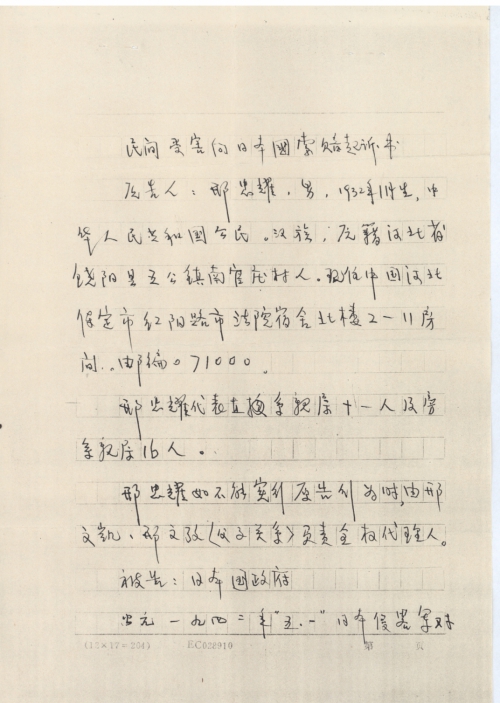 民间受害向日本国索赔起诉书
原告人：邢忠耀，男，1932年11月生，中
华人民共和国公民。汉族，原籍河北省
饶阳县五公镇南官庄村人。现住中国河北
保定市红阳路市法院宿舍北楼2-11房
间。邮编071000。
邢忠耀代表直接亲亲属十一人及旁
系亲属16人。
邢忠耀如不能实行原告行为时，由邢
文凯、邢文政（父子关系）负责全权代理人。
被告：日本国政府
公元一九四二年"五.一"日本侵略军对
(12×17=204) EC028910 第 页